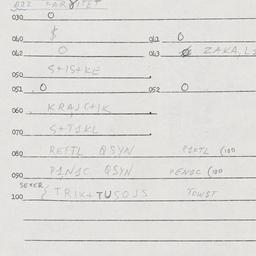 030 0
040 $ 041 0
042 0 043 ZAKA,
050 S+IS+KE
051 0 052 0
060 KRAJC+IK
070 S+T1KL
080 REFTL QSYN P1KTL (100
090 P1N1C QSYN PEN1C (100
SEKER
100 TRIK+TUSOJS TOWST